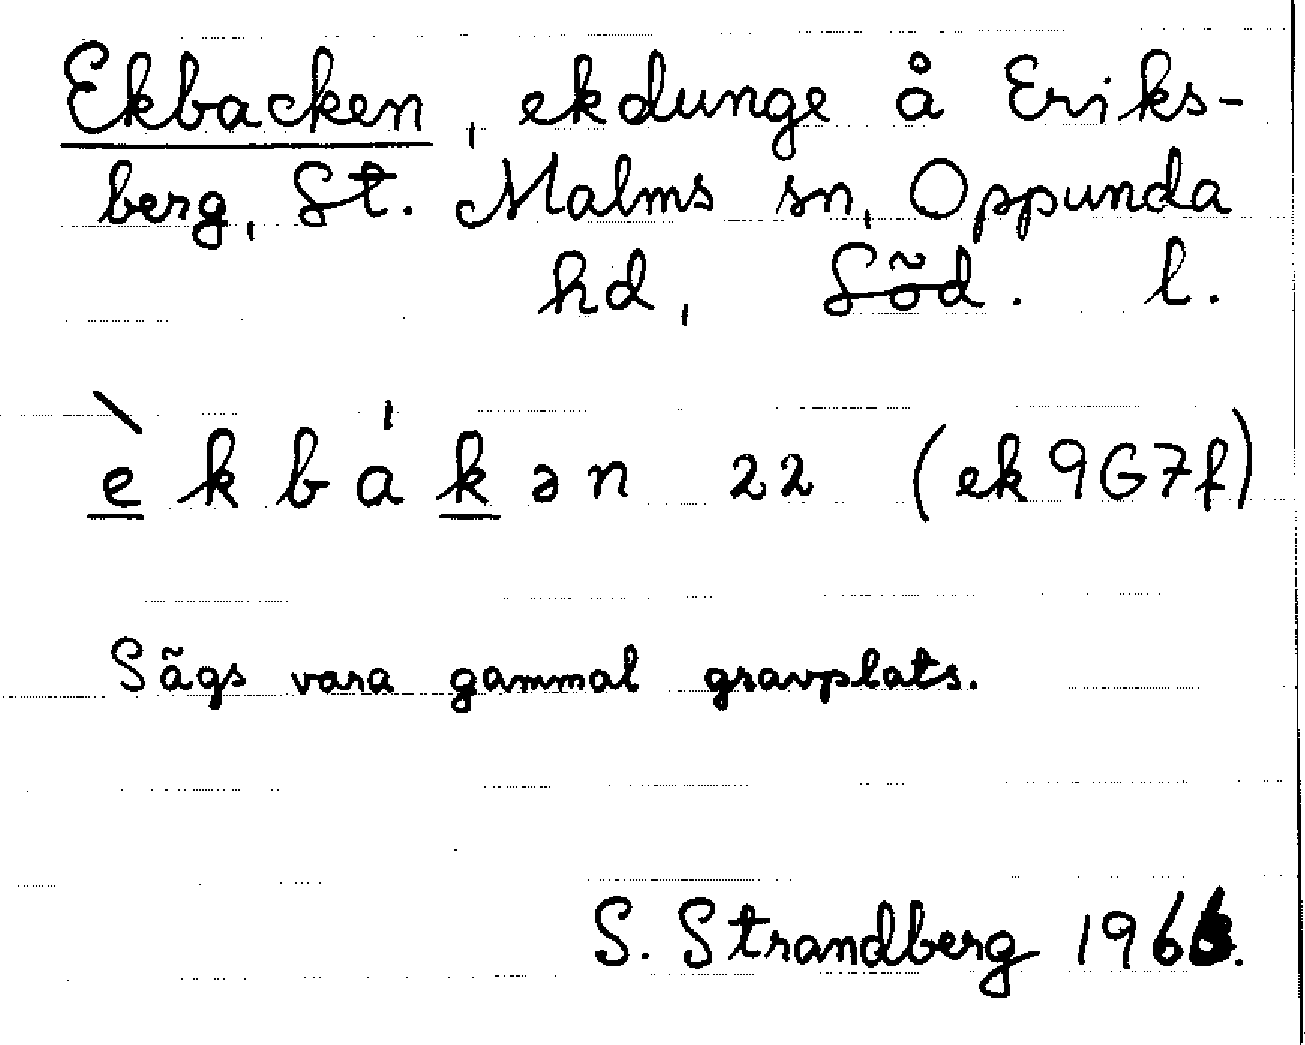 Ekbacken, ekdunge å Eriks-
berg, St. Malms sn, Oppunda
hd, Söd. l.
è k b a̍ k ə n 22 (ek 9G7f)
Sägs vara gammal gravplats.
S. Strandberg 1966.